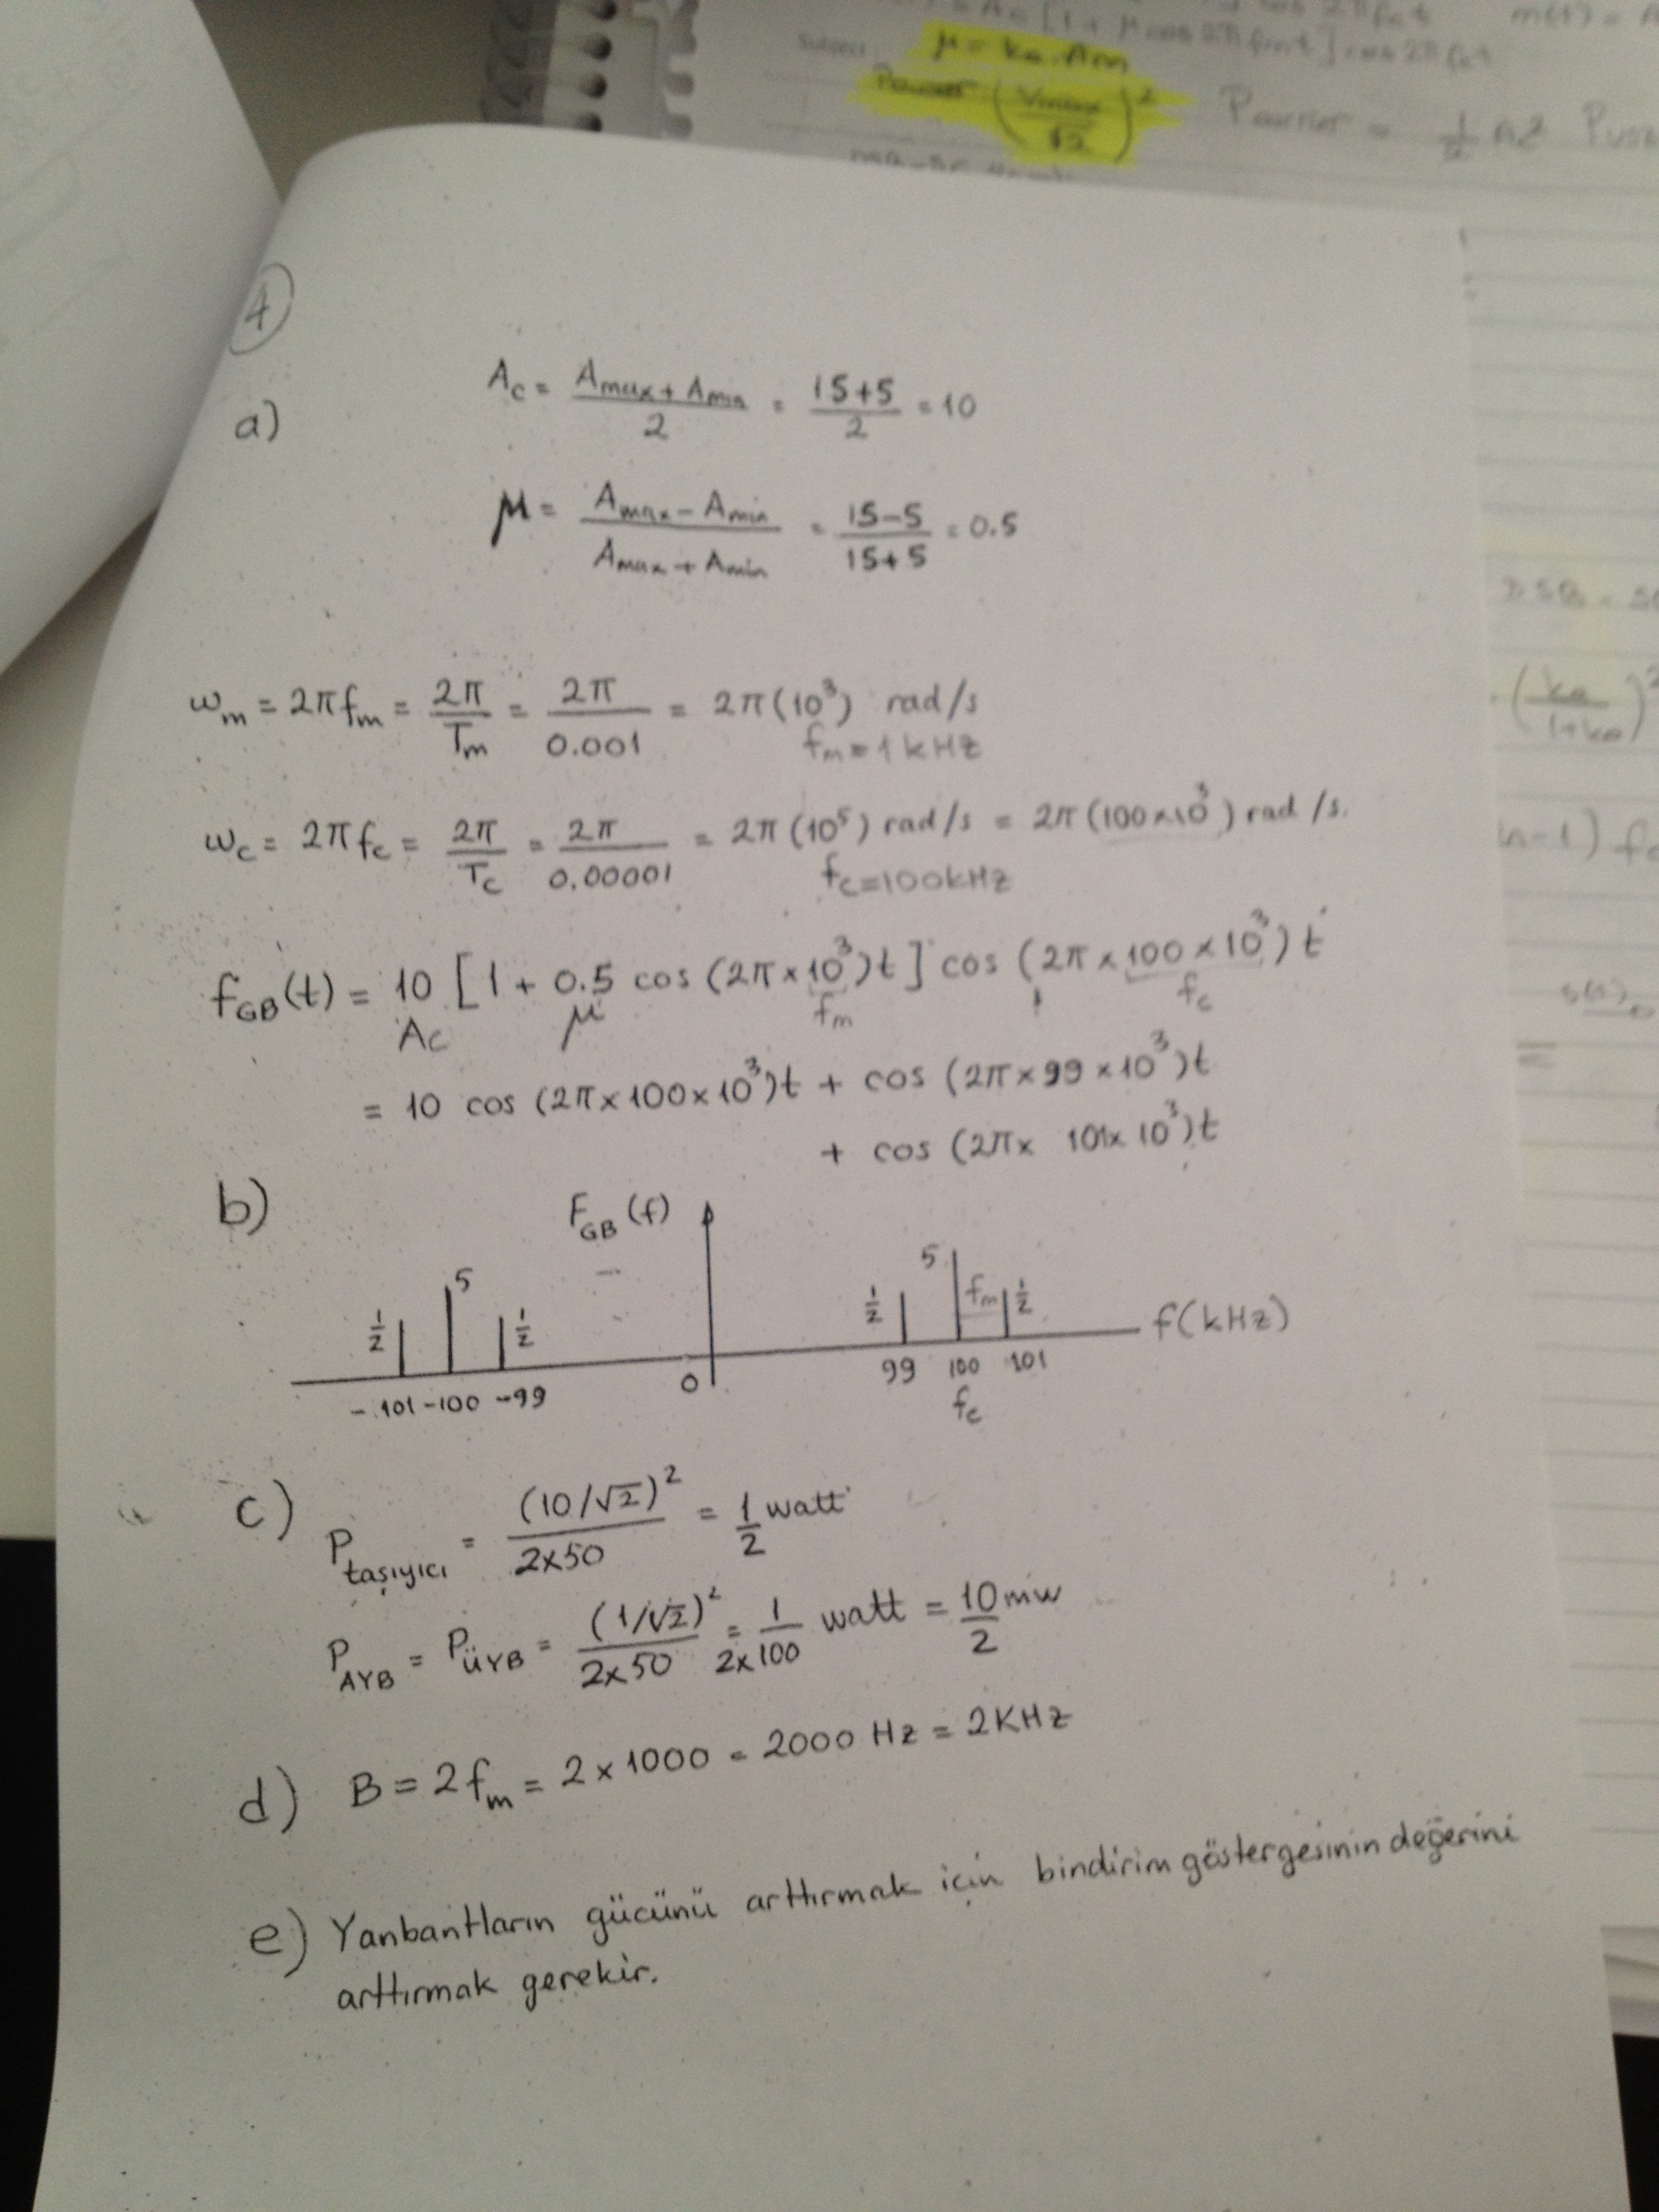 [1 + μ cos 2πfmt] cos 2πfct
m(t) =
Subject:
μ = ka.Am
Power (Vmax/√2)²
Pcarrier = 1/2 Ac²
4
a) Ac = (Amax + Amin)/2 = (15+5)/2 = 10
μ = (Amax - Amin)/(Amax + Amin) = (15-5)/(15+5) = 0.5
ωm = 2πfm = 2π/Tm = 2π/0.001 = 2π(10³) rad/s
fm = 1 kHz
ωc = 2πfc = 2π/Tc = 2π/0.00001 = 2π(10⁵) rad/s = 2π(100x10³) rad/s.
fc=100kHz
fGB(t) = 10 [1 + 0.5 cos (2π×10³)t] cos (2π×100×10³)t
Ac μ fm fc
= 10 cos (2π×100×10³)t + cos (2π×99×10³)t
+ cos (2π× 101× 10³)t
b) FGB(f)
1/2 5 1/2 1/2 5 fm 1/2 f(kHz)
-101 -100 -99 0 99 100 101
fc
c) Ptaşıyıcı = (10/√2)²/2x50 = 1/2 watt
PAYB = PÜYB = (1/√2)²/2x50 = 1/2x100 watt = 10/2 mw
d) B = 2fm = 2 x 1000 = 2000 Hz = 2KHz
e) Yanbantların gücünü arttırmak için bindirim göstergesinin değerini
arttırmak gerekir.
(ka/1+ka)²
(n-1) fc
s(t)
=